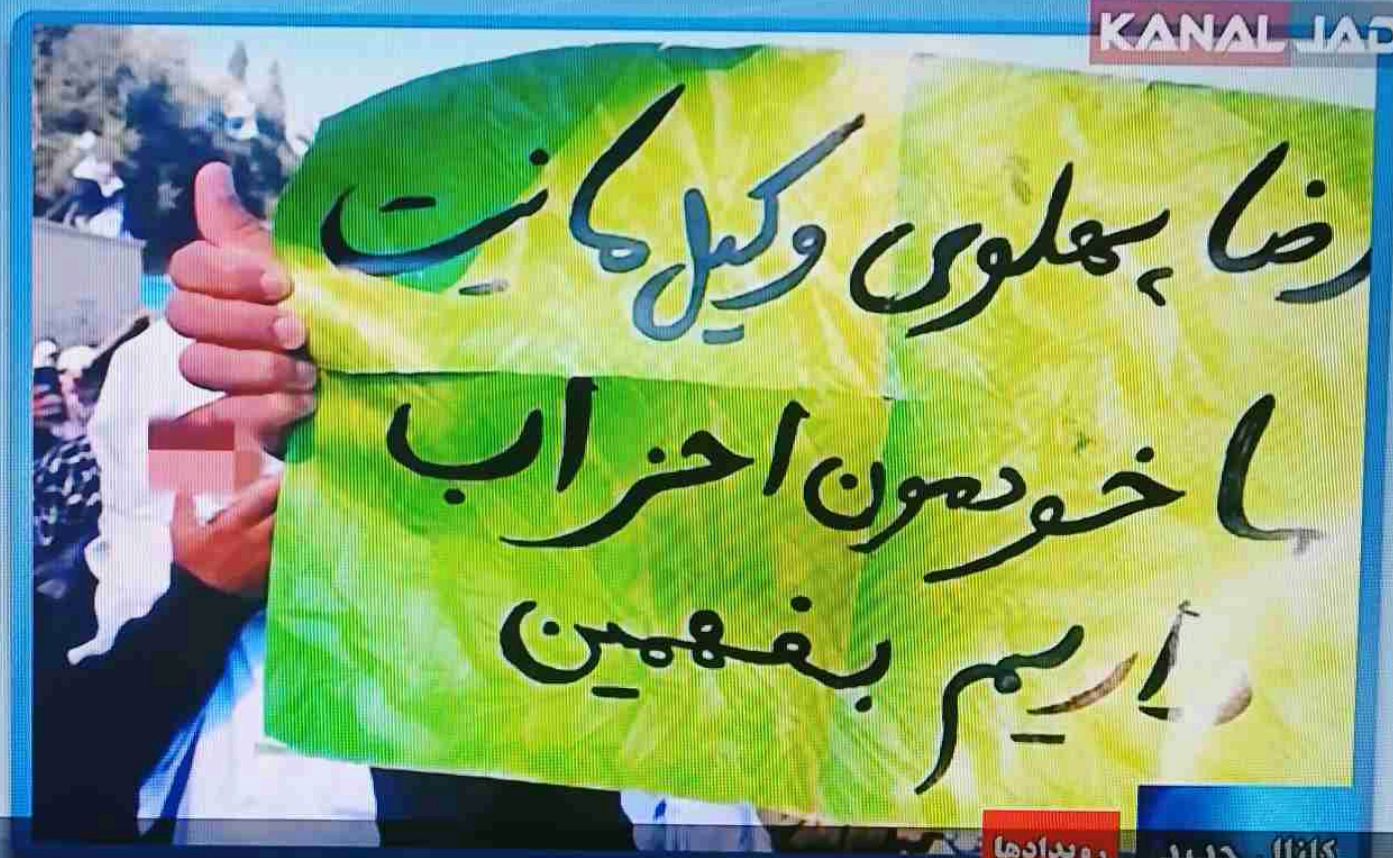 KANAL JAD
رضا پهلوی وکیل ما نیست
ما خودمون احزاب
داریم بفهمین
رویدادها
کانال جدید